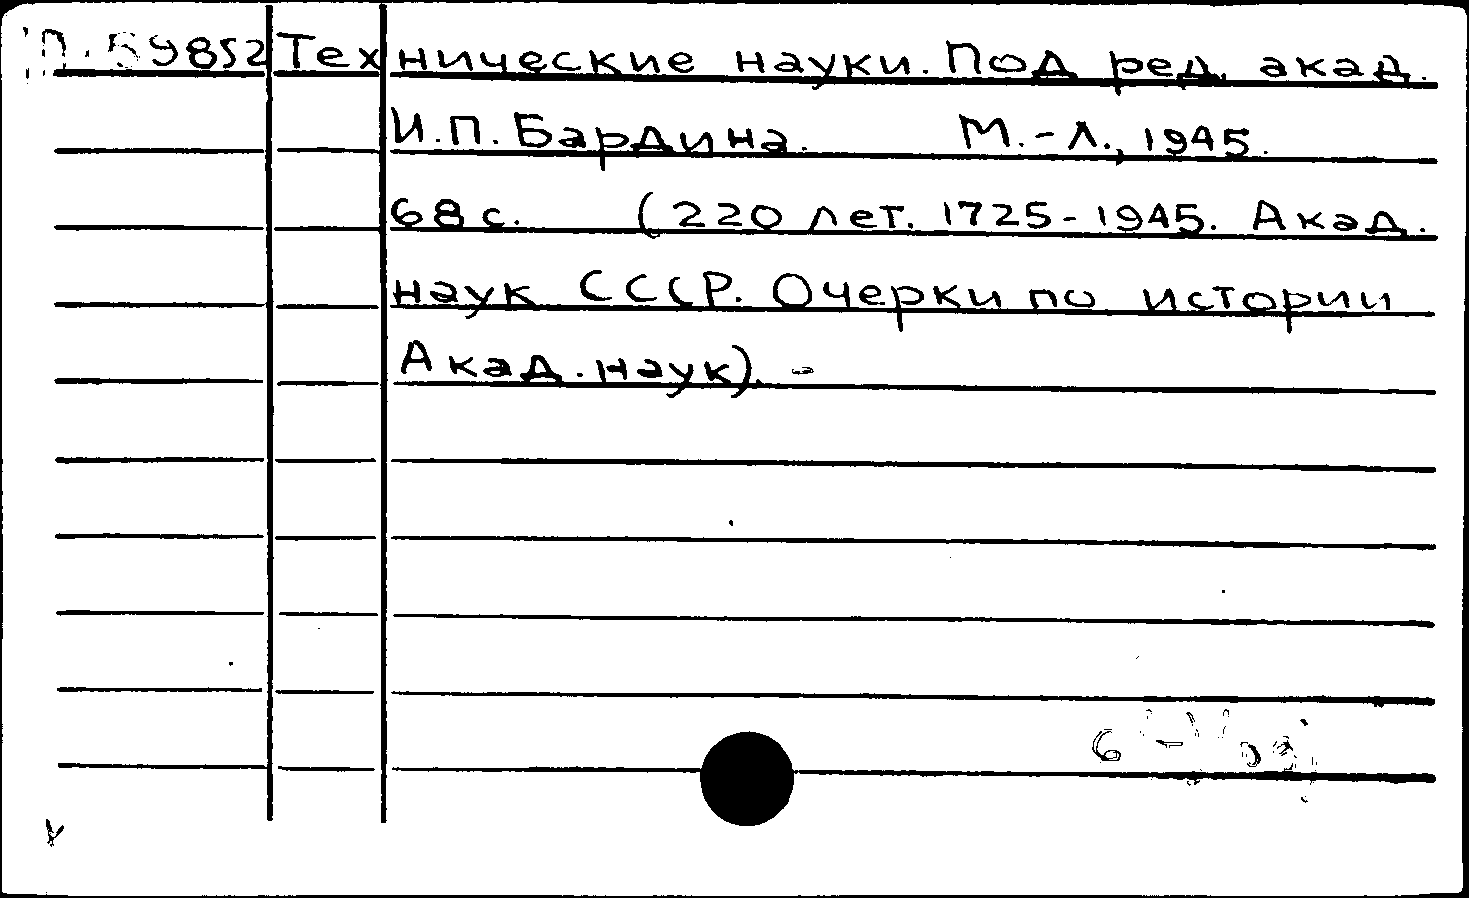 П.59852 Технические науки. Под ред. акад.
И.П. Бардина. М.-Л., 1945.
68 с. (220 лет. 1725-1945. Акад.
наук СССР. Очерки по истории
Акад. наук). -